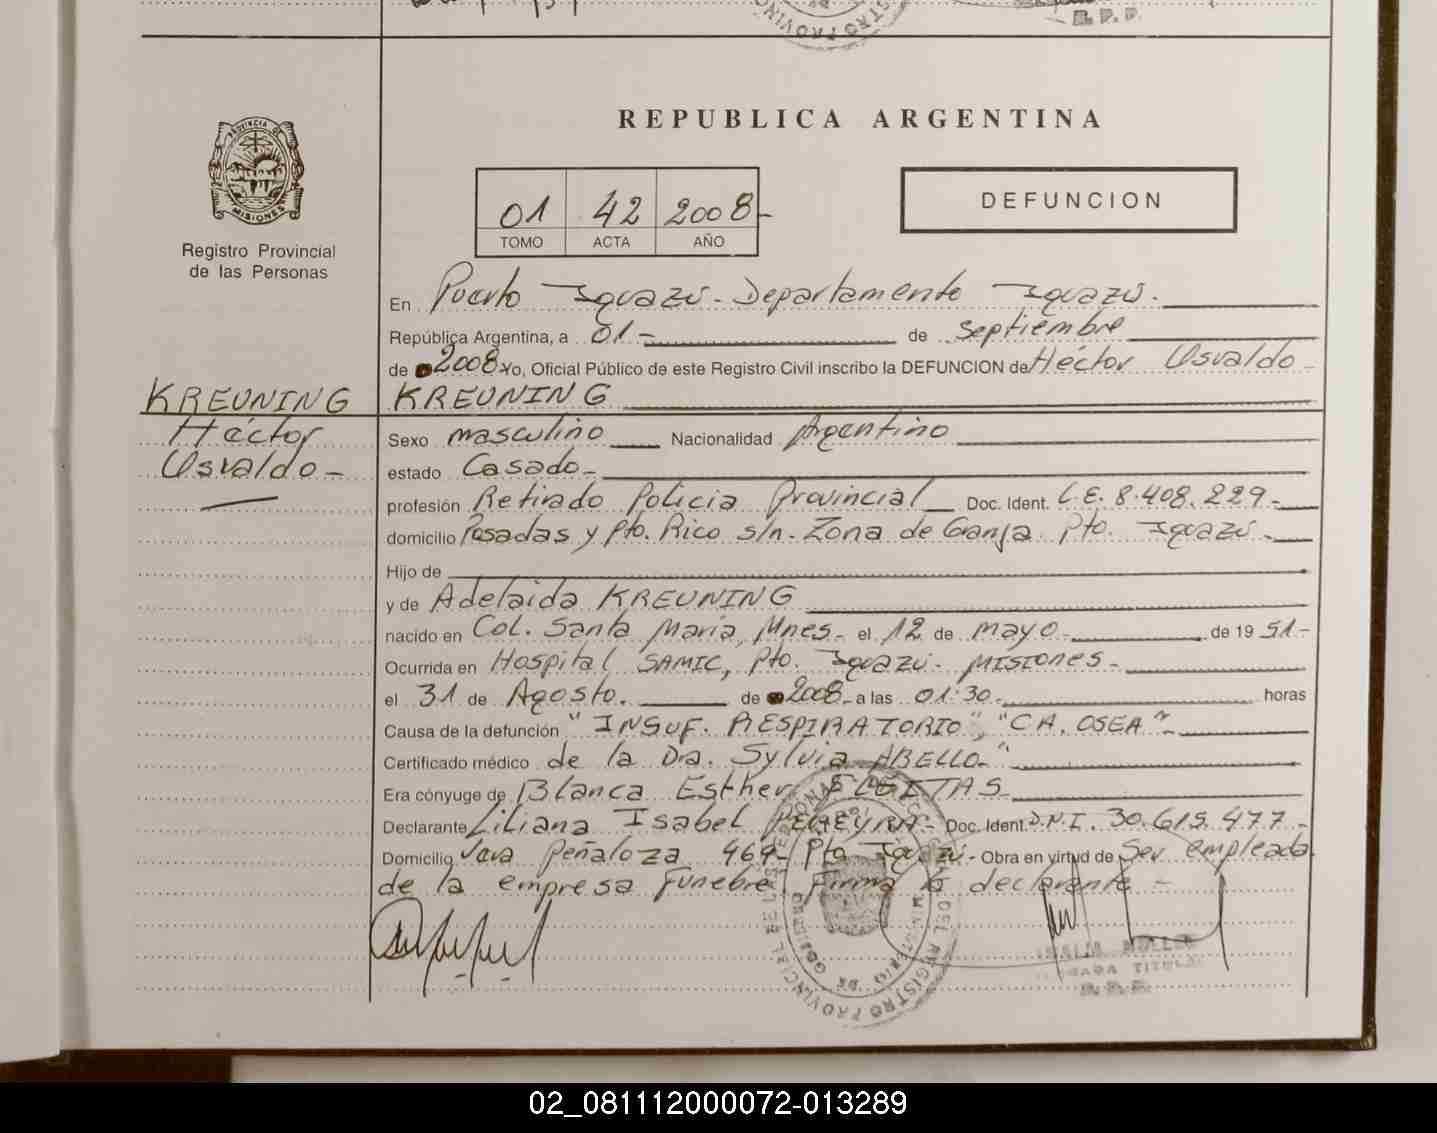 PROVINCIA DE
MISIONES
Registro Provincial
de las Personas
REPUBLICA ARGENTINA
01 42 2008-
TOMO ACTA AÑO
DEFUNCION
En Puerto Iguazú - Departamento Iguazú.
República Argentina, a 01- de septiembre
de 2008 Yo, Oficial Público de este Registro Civil inscribo la DEFUNCION de Héctor Osvaldo
KREUNING KREUNING
Héctor
Sexo masculino Nacionalidad Argentino
Osvaldo-
estado Casado-
profesión Retirado Policia Provincial Doc. Ident. L.E. 8.408.229-
domicilio Posadas y Pto. Rico s/n. Zona de Granja Pto. Iguazú-
Hijo de
y de Adelaida KREUNING
nacido en Col. Santa María, Mnes- el 12 de mayo- de 19 51-
Ocurrida en Hospital SAMIC, Pto. Iguazú. Misiones-
el 31 de Agosto. de 2008- a las 01:30 horas
Causa de la defunción "INSUF. RESPIRATORIO", "CA. OSEA"-
Certificado médico de la Dra. Sylvia ABELLO-"
Era cónyuge de Blanca Esther
Declarante Liliana Isabel PEREYRA- Doc. Ident. D.N.I. 30.615.477-
Domicilio Jara Peñaloza 469- Pto Iguazú- Obra en virtud de Ser empleada
de la empresa Funebre. Firma la declarante-
02_081112000072-013289